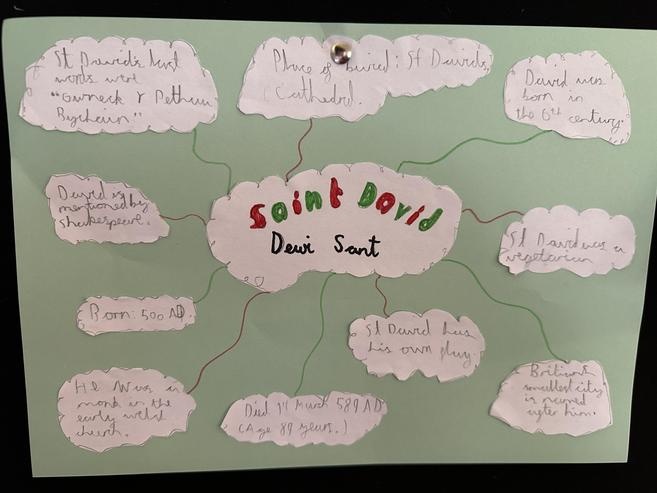 St David's last
words were
"Gwneck Y Pethau
Bychain"
Place of buried: St Davids
Cathedral.
David was
born in
the 6th century.
David is
mentioned by
Shakespeare.
Saint David
Dewi Sant
St David was a
vegetarian
Born: 500 AD.
St David has
his own flag.
He was a
monk in the
early welsh
church.
Died 1st March 589 AD
(Age 89 years.)
Britians
smallest city
is named
after him.